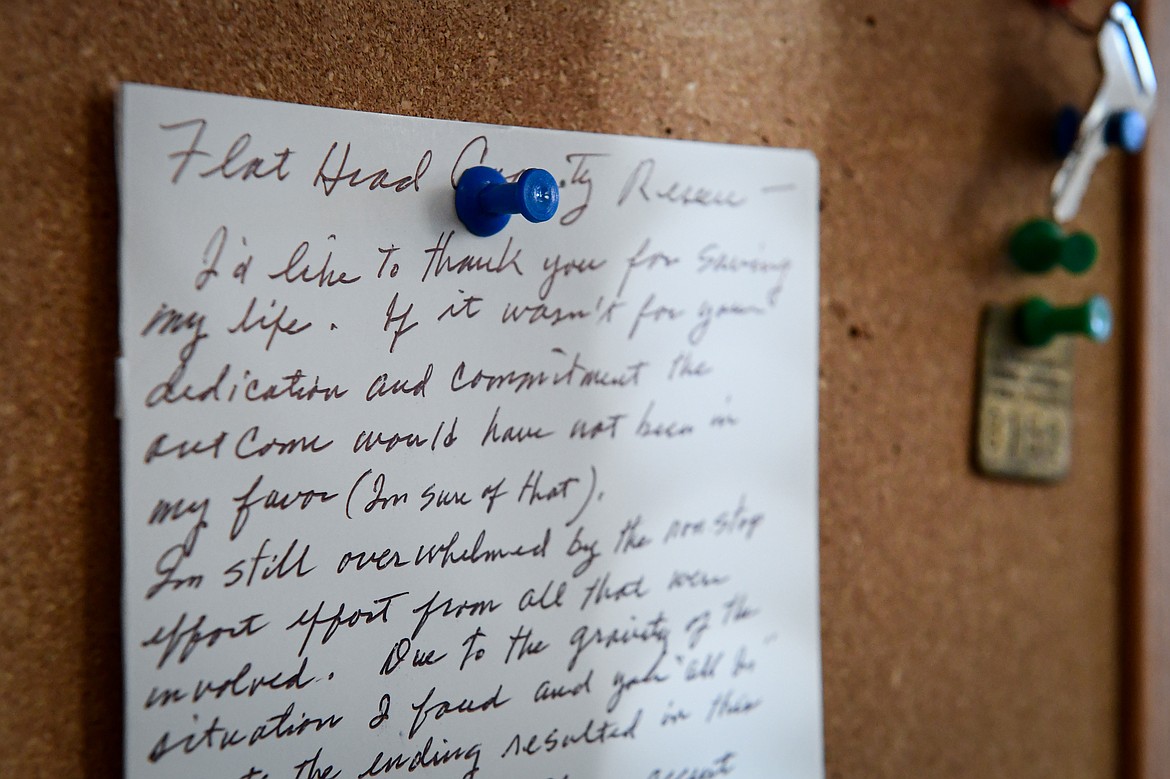 Flat Head County Rescue —
I'd like to thank you for saving
my life. If it wasn't for your
dedication and commitment the
outcome would have not been in
my favor (Im sure of that).
Im still overwhelmed by the non stop
effort effort from all that were
involved. Due to the gravity of the
situation I faced and you "all
the ending resulted in
accept